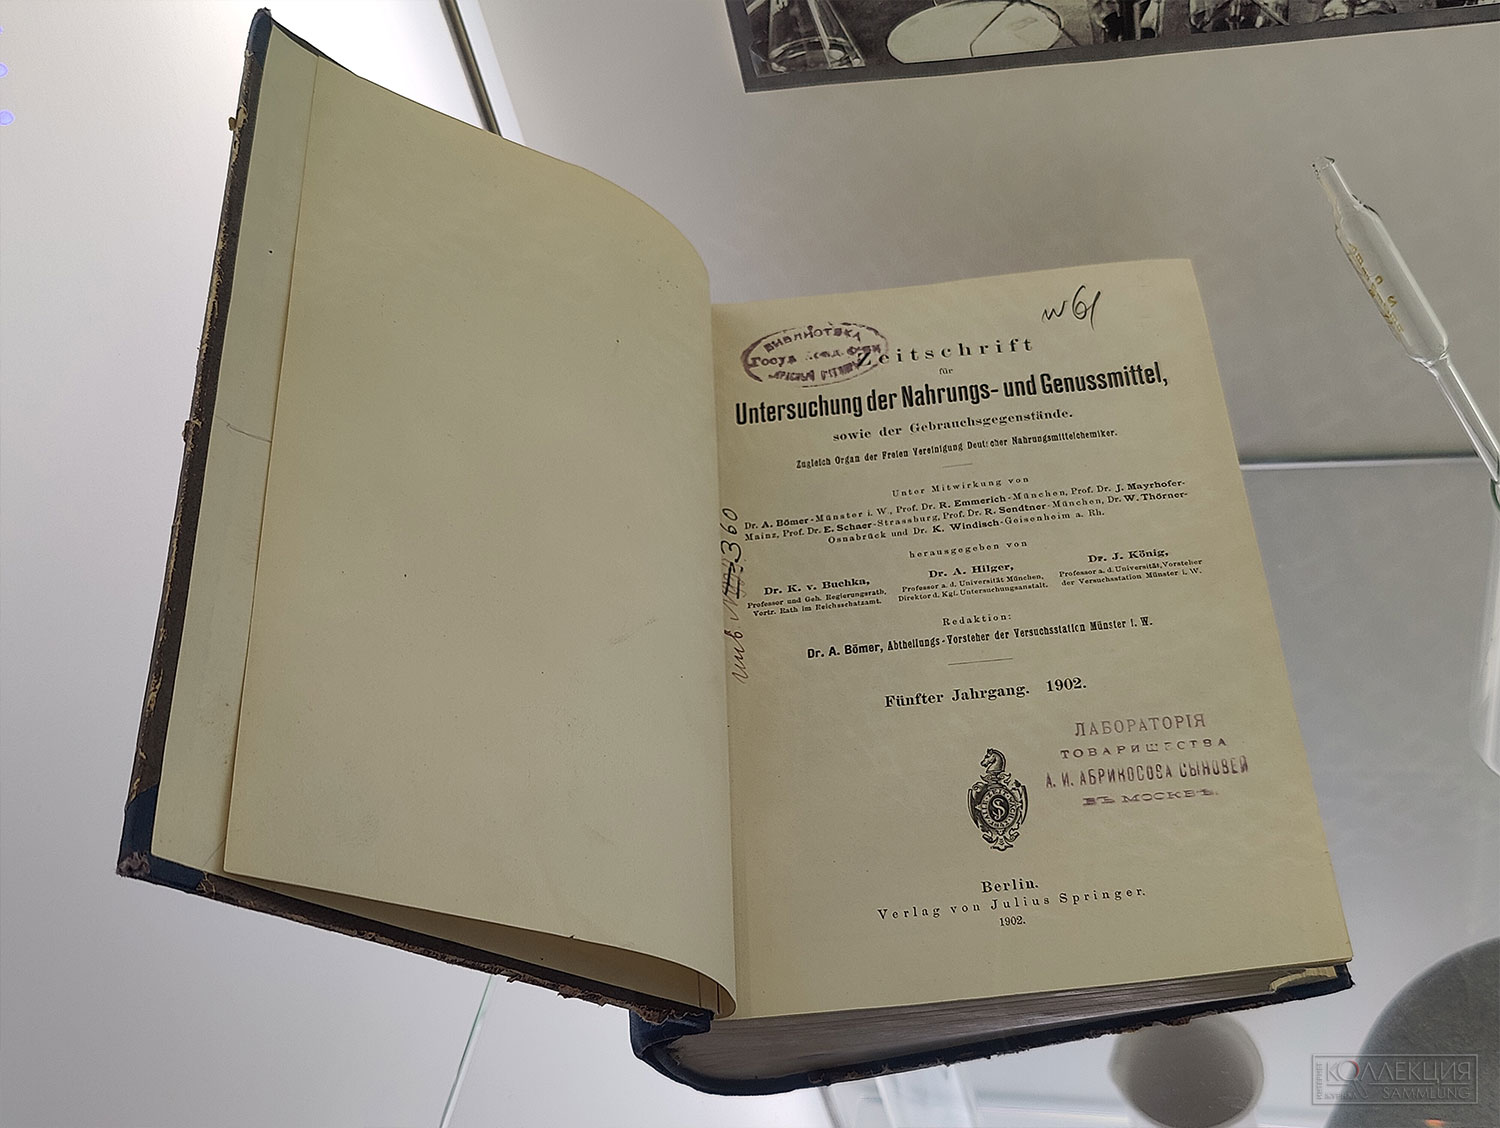 w 61
БИБЛИОТЕКА
Zeitschrift
für
Untersuchung der Nahrungs- und Genussmittel,
sowie der Gebrauchsgegenstände.
Zugleich Organ der Freien Vereinigung Deutscher Nahrungsmittelchemiker.
Unter Mitwirkung von
Dr. A. Bömer-Münster i. W., Prof. Dr. R. Emmerich-München, Prof. Dr. J. Mayrhofer-
Mainz, Prof. Dr. E. Schaer-Strassburg, Prof. Dr. R. Sendtner-München, Dr. W. Thörner-
Osnabrück und Dr. K. Windisch-Geisenheim a. Rh.
herausgegeben von
Dr. K. v. Buchka,
Professor und Geh. Regierungsrath,
Vortr. Rath im Reichsschatzamt.
Dr. A. Hilger,
Professor a. d. Universität München,
Direktor d. Kgl. Untersuchungsanstalt.
Dr. J. König,
Professor a. d. Universität, Vorsteher
der Versuchsstation Münster i. W.
Redaktion:
Dr. A. Bömer, Abtheilungs-Vorsteher der Versuchsstation Münster i. W.
Fünfter Jahrgang. 1902.
ЛАБОРАТОРІЯ
ТОВАРИЩЕСТВА
А. И. АБРИКОСОВА СЫНОВЕЙ
ВЪ МОСКВѢ.
Berlin.
Verlag von Julius Springer.
1902.
КОЛЛЕКЦИЯ
SAMMLUNG